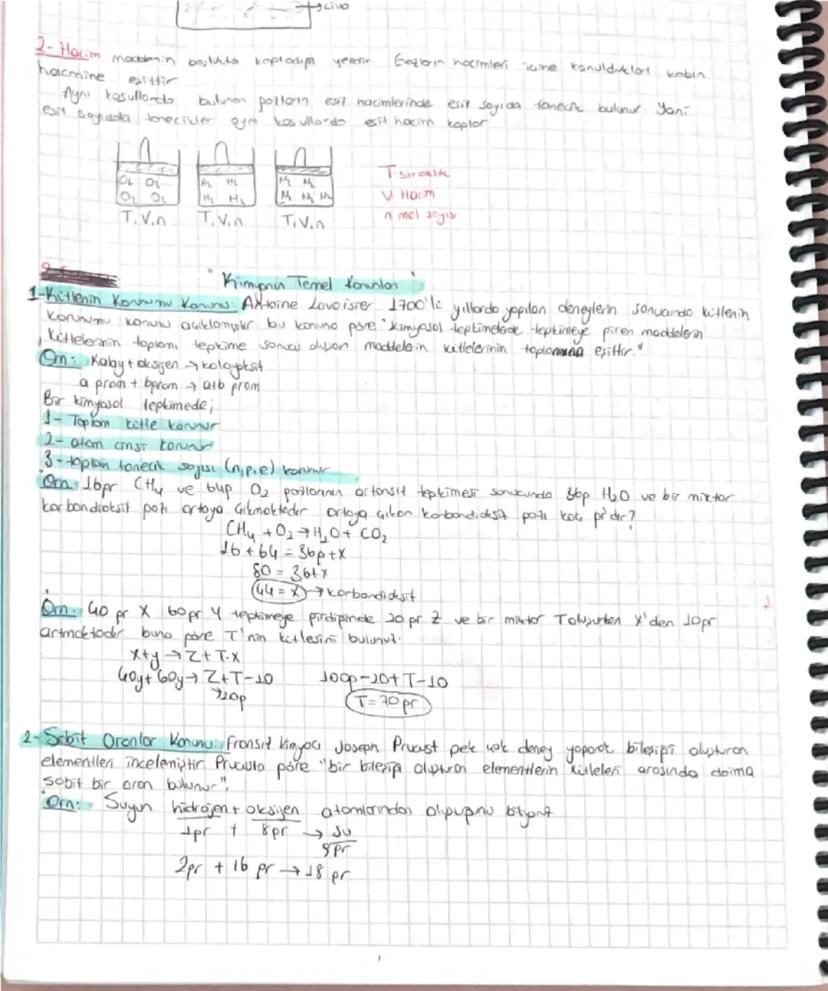 → civa
2- Hacim maddenin boşlukta kapladığı yerdir Gazların hacimleri içine konuldukları kabın
hacmine eşittir
Aynı koşullarda bulunan gazların eşit hacimlerinde eşit sayıda tanecik bulunur. Yani
eşit sayıda tanecikler aynı koşullarda eşit hacim kaplar
O₂ O₂ H₂ H₂ N₂ N₂
O₂ O₂ H₂ H₂ N₂ N₂ N₂
T.V.n T.V.n T.V.n
T: sıcaklık
V Hacim
n mol sayısı
"Kimyanın Temel Kanunları"
1-Kütlenin Korunumu Kanunu: Antoine Lavoisier 1700'lü yıllarda yapılan deneylerin sonucunda kütlenin
korunumu kanunu açıklamıştır bu kanuna göre "kimyasal tepkimelerde tepkimeye giren maddelerin
kütlelerinin toplamı tepkime sonucu oluşan maddelerin kütlelerinin toplamına eşittir."
Örn: Kalay + oksijen → kalayoksit
a gram + bgram → a+b gram
Bir kimyasal tepkimede;
1- Toplam kütle korunur
2- atom cinsi korunur
3- toplam tanecik sayısı (n,p,e) korunur
Örn: 16gr CH₄ ve 64g O₂ gazlarının artansız tepkimesi sonucunda 36g H₂O ve bir miktar
karbondioksit gazı ortaya çıkmaktadır ortaya çıkan karbondioksit gazı kaç gr'dır?
CH₄ + O₂ → H₂O + CO₂
16 + 64 = 36g + x
80 = 36+x
44 = x → karbondioksit
Örn: 40 gr X 60gr Y tepkimeye girdiğinde 20 gr Z ve bir miktar T oluşurken X'den 10gr
artmaktadır buna göre T'nin kütlesini bulunuz.
x+y → Z + T.x
40g + 60g → Z+T-10 100g-20+T-10
→20g T=70gr
2- Sabit Oranlar Kanunu: Fransız kimyacı Joseph Proust pek çok deney yaparak bileşiği oluşturan
elementleri incelemiştir Prousta göre "bir bileşiği oluşturan elementlerin kütleleri arasında daima
sabit bir oran bulunur".
Örn: Suyun hidrojen + oksijen atomlarından oluştuğunu biliyoruz
1gr + 8gr → su
9gr
2gr + 16 gr → 18 gr